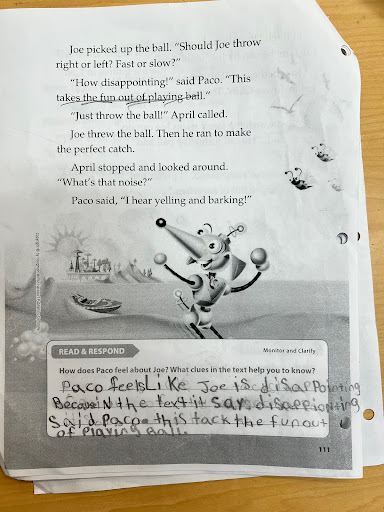 Joe picked up the ball. “Should Joe throw
right or left? Fast or slow?”
“How disappointing!” said Paco. “This
takes the fun out of playing ball.”
“Just throw the ball!” April called.
Joe threw the ball. Then he ran to make
the perfect catch.
April stopped and looked around.
“What’s that noise?”
Paco said, “I hear yelling and barking!”
READ & RESPOND
Monitor and Clarify
How does Paco feel about Joe? What clues in the text help you to know?
Paco feels Like Joe is disapPointing
Because iN the text it Says disappionting
Said Paco this tack the fun out
of Playing Ball.
111